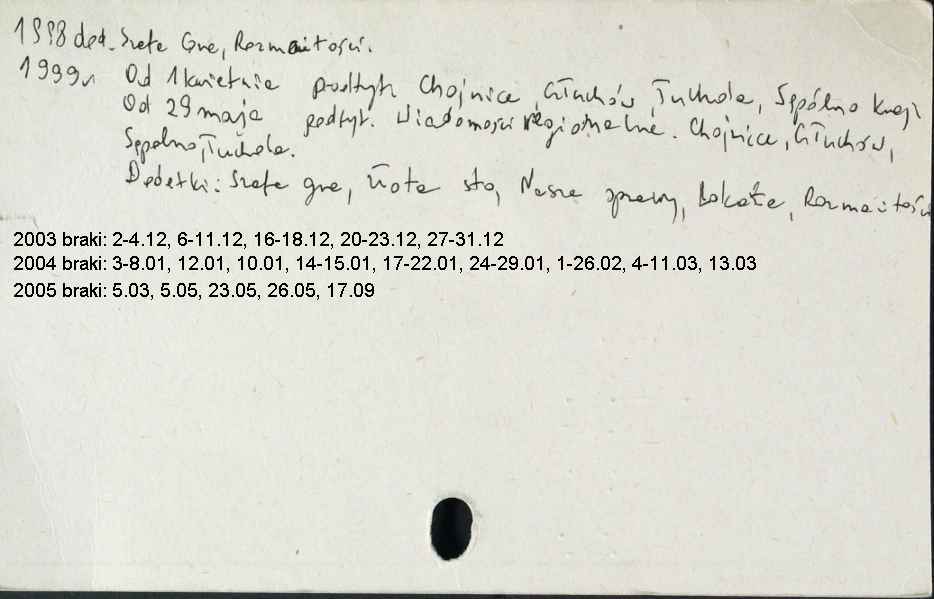 1998 dod. Szefe Gre, Rozmaitości.
1999r. Od 1 kwietnia podtyt. Chojnice, Człuchów, Tuchola, Sępólno Kraj.
Od 29 maja podtyt. Wiadomości regionalne. Chojnice, Człuchów,
Sępolno, Tuchola.
Dodatki: gre, Złote sto, Nasze sprawy, Rozmaitości
2003 braki: 2-4.12, 6-11.12, 16-18.12, 20-23.12, 27-31.12
2004 braki: 3-8.01, 12.01, 10.01, 14-15.01, 17-22.01, 24-29.01, 1-26.02, 4-11.03, 13.03
2005 braki: 5.03, 5.05, 23.05, 26.05, 17.09